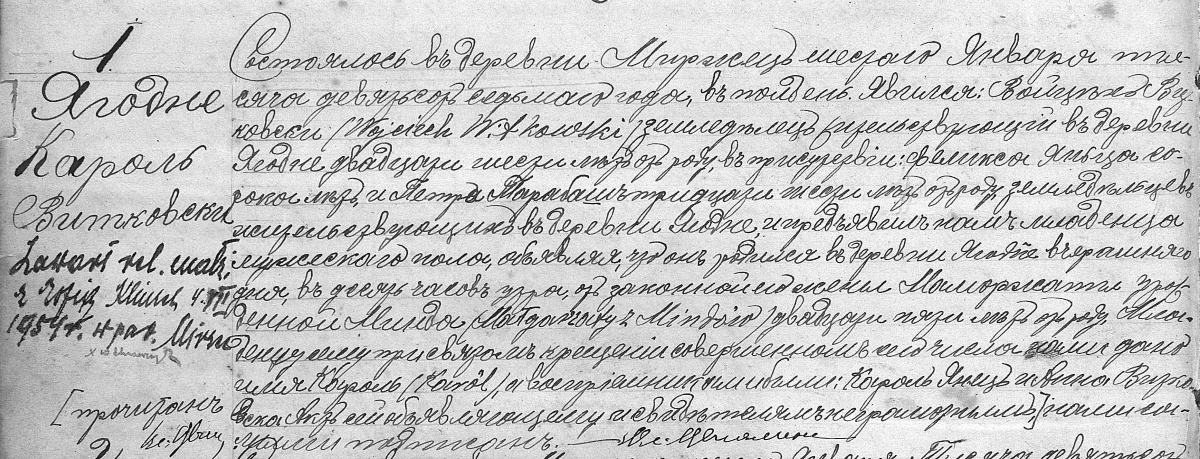 1.
Ягодне
Кароль
Витковски
Zawarł rel. małż.
z Zofią Klimek 4. VIII
1957 r. w par.
[прочитанъ
Состоялось въ деревни Миржецъ шестаго Января ты-
сяча девятьсотъ седьмаго года, въ полдень. Явился: Войцѣхъ Вит-
ковски /Wojciech Witkowski/ земледѣлецъ жительствующій въ деревни
Ягодне двадцати шести лѣтъ отъ роду, въ присутствіи: Феликса Яньца со-
рока лѣтъ и Петра Карабанъ тридцати шести лѣтъ отъ роду земледѣльцевъ
жительствующихъ въ деревни Ягодне, и предъявилъ намъ младенца
мужескаго пола, объявляя, что онъ родился въ деревни Ягодне вчерашняго
дня, въ десять часовъ утра, отъ законной его жены Малгоржаты урож-
денной Минда /Małgorzaty z Mindów/ двадцати пяти лѣтъ отъ роду. Мла-
денцу сему при святомъ крещеніи совершенномъ сего числа нами дано
имя Кароль /Karól/, а воспріемниками были: Кароль Янецъ и Анна Витко-
вска. Актъ сей объявляющему и свидѣтелямъ неграмотнымъ] нами са-
мыми подписанъ.
2,